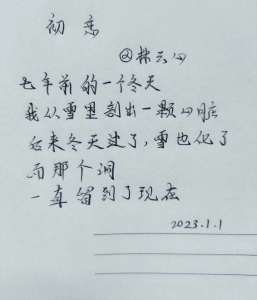 初恋
@林云心
七年前的一个冬天
我从雪里刨出一颗心脏
后来冬天过了,雪也化了
而那个洞
一直留到了现在
2023.1.1